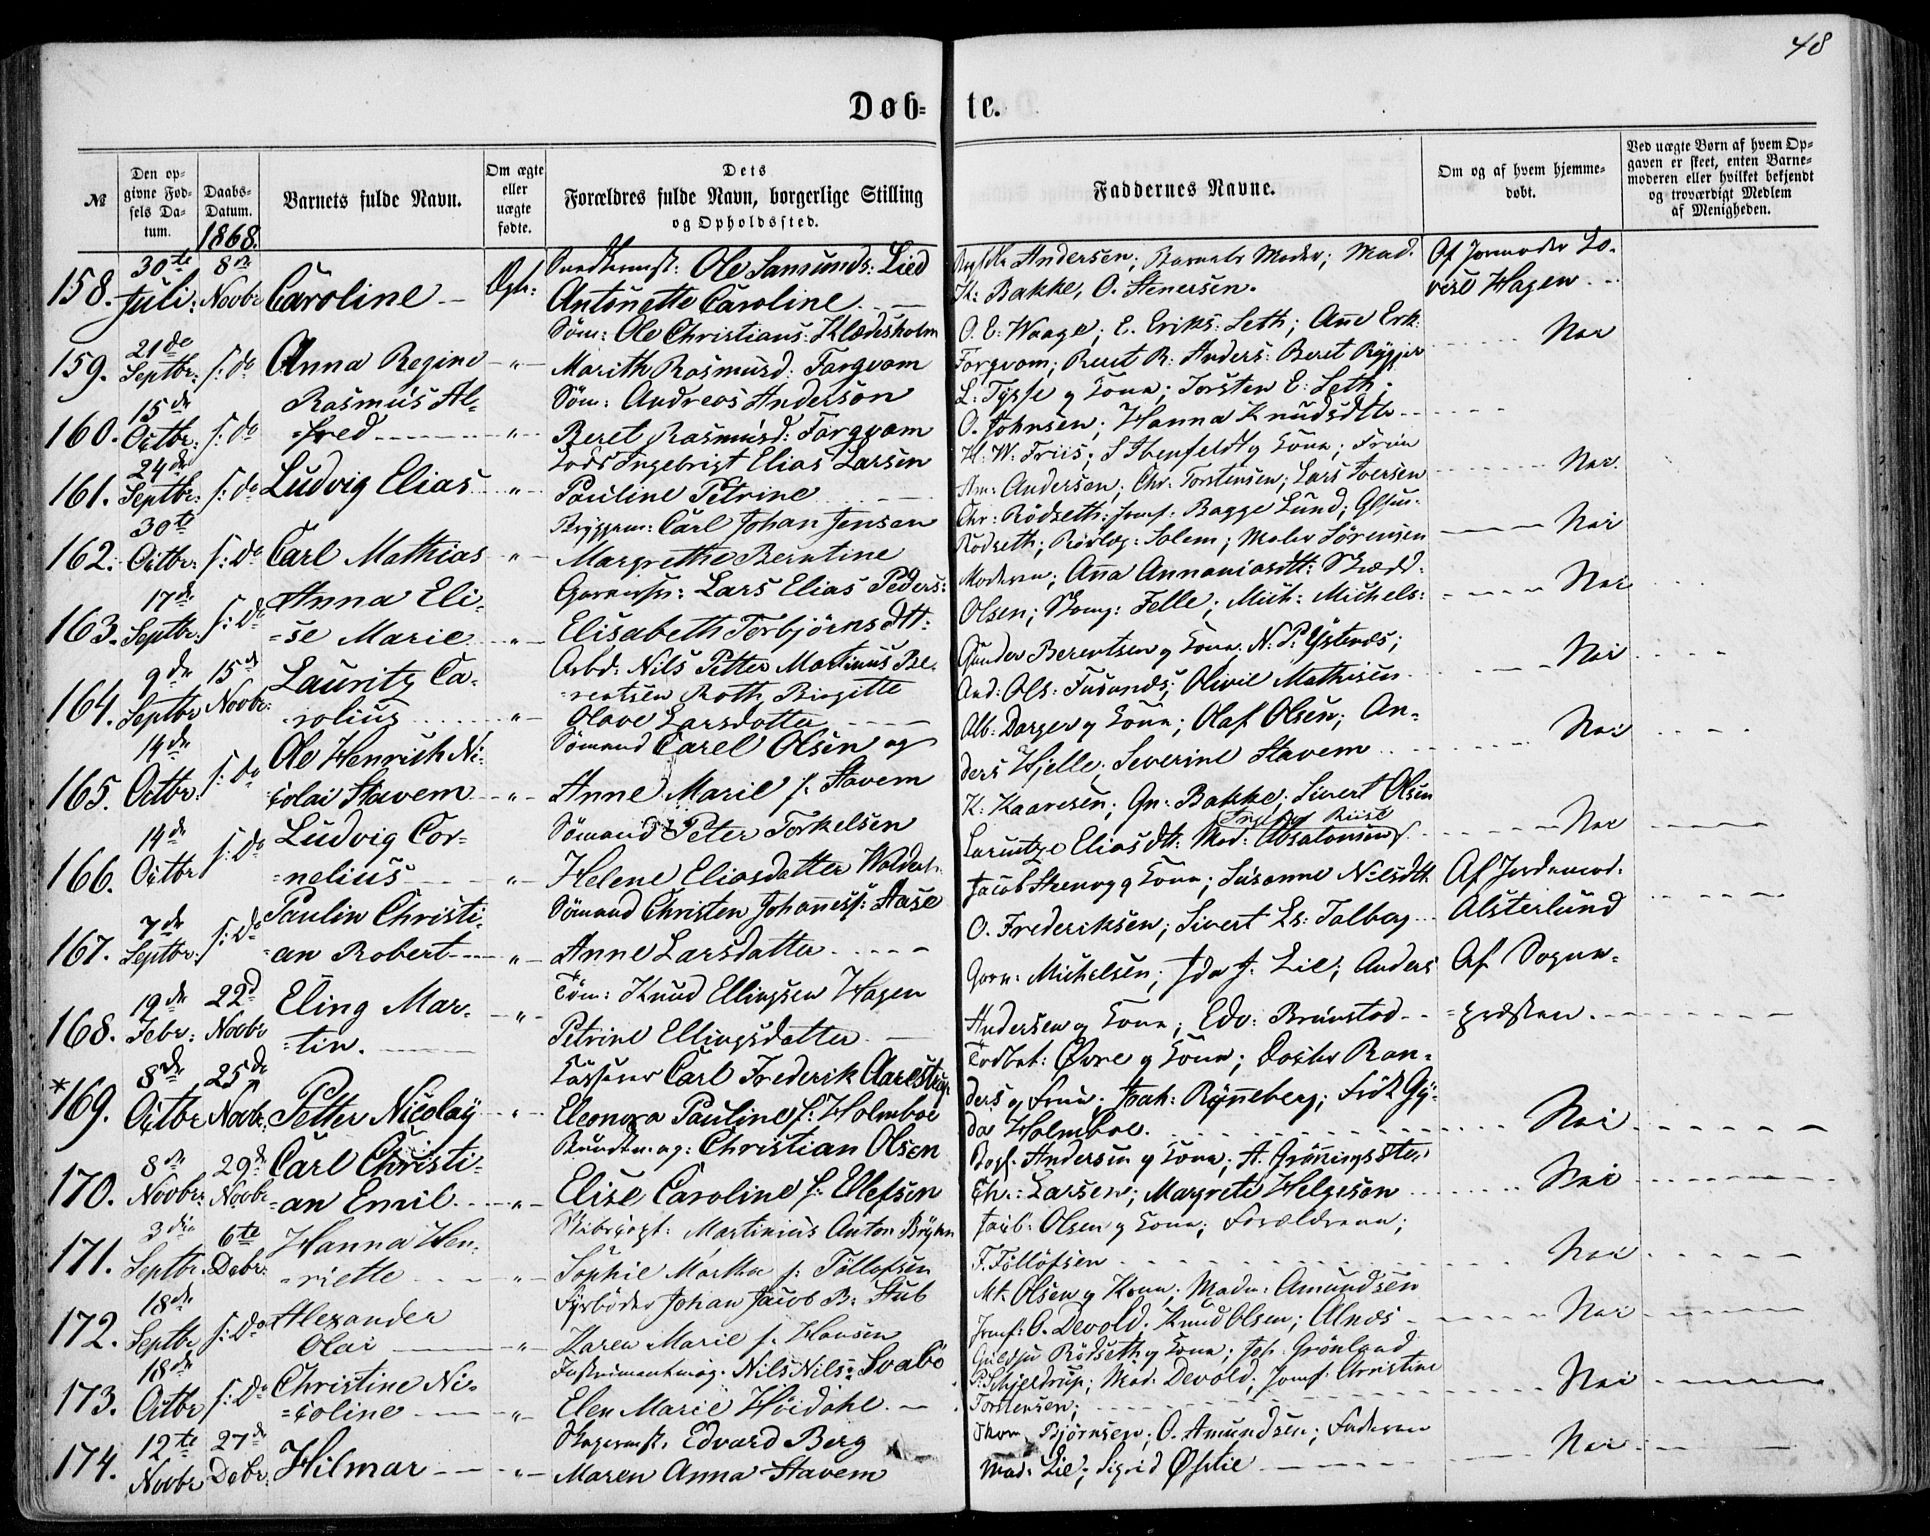 48
Døb-
te.
№
Den op-
givne Fød-
sels Da-
tum.
Daabs-
Datum.
1868.
Barnets fulde Navn.
Om ægte
eller
uægte
fødte.
Dets
Forældres fulde Navn, borgerlige Stilling
og Opholdssted.
Faddernes Navne.
Om og af hvem hjemme-
døbt.
Ved uægte Børn af hvem Op-
gaven er skeet, enten Barne-
moderen eller hvilket bekjendt
og troværdigt Medlem
af Menigheden.
158. 30te Juli: 8de Novbr Caroline Ole Samunds: Lied
Antonette Caroline
Andersen; Barnets Moder; Mad.
Bakke, O. Stenersen.
Af Jormoder Lo-
vise Hagen
159. 21de Septbr: s: Do Anna Regine " Søm: Ole Christians: Klædesholm
Marith Rasmusd: Torgvom
O. E: Waage; E. Eriks: Leth; Ane Erk:
Torgvom; Knut R: Anders: Beret
Nei
160. 15de Octbr: s: Do Rasmus Al-
=fred " Søm: Andreas Anderson
Beret Rasmusd: Torgvom
L: Tysse og Kone; Torsten E: Leth;
O. Johnsen; Hanna Knudsdtr
161. 24de Septbr: s: Do Ludvig Elias " Lods Ingebrigt Elias Larsen
Pauline Petrine
H: W: Friis; og Kone; Fruen
Andersen; Chr: Torstensen; Lars Iversen
Nei.
162. 30te Octbr: s: Do Carl Mathias " Carl Johan Jensen
Margrethe Berntine
Chr: Rødseth; Jomf: Bagge Lund;
Rødseth; Solem; Maler Sørensen
Nei
163. 17de Septbr: s: Do Anna Eli-
=se Marie " Lars Elias Peders:
Elisabeth Torbjørnsdtt:
Moderen; Anna Annaniasdtt:
Olsen; Felle; Mich: Michels:
Nei
164. 9de Septbr 15de Novbr: Lauritz Ca-
=rolius " Arbd: Nils Petter Martinus Be-
=rentsen Roth, Birgitte
Olave Larsdatter
Gunder Berentsen og Kone; N. P. Ystenes;
And: Ols: Olivie Mathisen
Nei
165. 14de Octbr: s: Do Ole Henrich Ni-
=colai Stavem " Sømand Carel Olsen og
Anne Marie f. Stavem
Alb: Darger og Kone; Olaf Olsen; An-
ders Hjelle; Severine Stavem
Nei
166. 14de Octbr s: Do Ludvig Cor-
=nelius " Sømand Peter Torkelsen
Helene Eliasdatter
K. Kaaresen; Gn. Bakke; Sivert Olsen
Eliasdtt: Mad: Absalonsen
Nei
167. 7de Septbr: s: Do Paulin Christi-
=an Robert " Sømand Christen Johaness: Aase
Anne Larsdatter
Jacob og Kone; Susanne Nilsdtt.
O. Frederiksen; Sivert Ls: Talberg
Af Jordemod.
Alsterlund
168. 19de Febr: 22d Novbr Eling Mar-
=tin. " Tøm: Knud Ellingsen Hagen
Petrine Ellingsdatter
Michelsen; Ida J. Lie; Anders
Andersen og Kone; Edv: Brunstad
Af Sogne-
=præsten.
*169. 8de Octbr 25de Novbr: Petter Nicolay " Casserer Carl Frederik Aarestrup
Eleonora Pauline f: Holmboe
Toldbet: Øvre og Kone; Doctor Ran-
ders og Frue; Rynneberg; Frøk Gy-
da Holmboe.
Nei
170. 8de Novbr: 29de Novbr Carl Christi-
=an Emil " Christian Olsen
Elise Caroline f: Ellefsen
Andersen og Kone; A. Grönningsæter
Chr: Larsen; Margrete Helgesen
Nei
171. 3die Septbr. 6te Debr: Hanna Hen-
=riette " Martinius Anton
Sophie Martha f: Tollofsen
Jacb: Olsen og Kone; Forældrene;
F. Tollofsen
Nei
172. 18de Septbr s: Do Alexander
Olai " Fyrbøder Johan Jacob B: Stub
Karen Marie f. Hansen
Mt. Olsen og Kone; Madm: Amundsen
Jomf: O. Devold. Knud Olsen; Alnæs
Nei
173. 18de Octbr s: Do Christine Ni-
=coline " Instrumentmag. Nils Nils: Svabø
Elen Marie Höidahl.
Guldsm Rödseth og Kone; Joh. Grönland
P. Schjeldrup; Mad: Devold; Jomf: Christine
Torstensen;
Nei
174. 12te Novbr 27de Debr. Hilmar " Edvard Berg
Maren Anna Stavem
Bjørnsen; O. Amundsen; Faderen
Mad: Lie; Sigrid Østlie
Nei